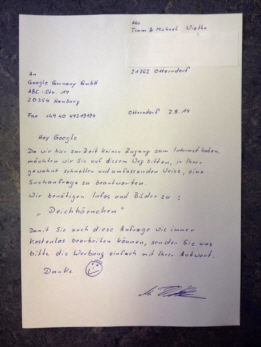 Abs
Timm & Michael Wiethe
21762 Otterndorf
An
Google Germany GmbH
ABC-Str. 19
20354 Hamburg
Fax +49 40 49219194
Otterndorf 2.8.19
Hey Google
Da wir hier zur Zeit keinen Zugang zum Internet haben,
möchten wir Sie auf diesem Weg bitten, in Ihrer
gewohnt schnellen und umfassenden Weise, eine
Suchanfrage zu beantworten.
Wir benötigen Infos und Bilder zu:
„Deichhörnchen"
Damit Sie auch diese Anfrage wie immer
kostenlos bearbeiten können, senden Sie uns
bitte die Werbung einfach mit Ihrer Antwort.
Danke